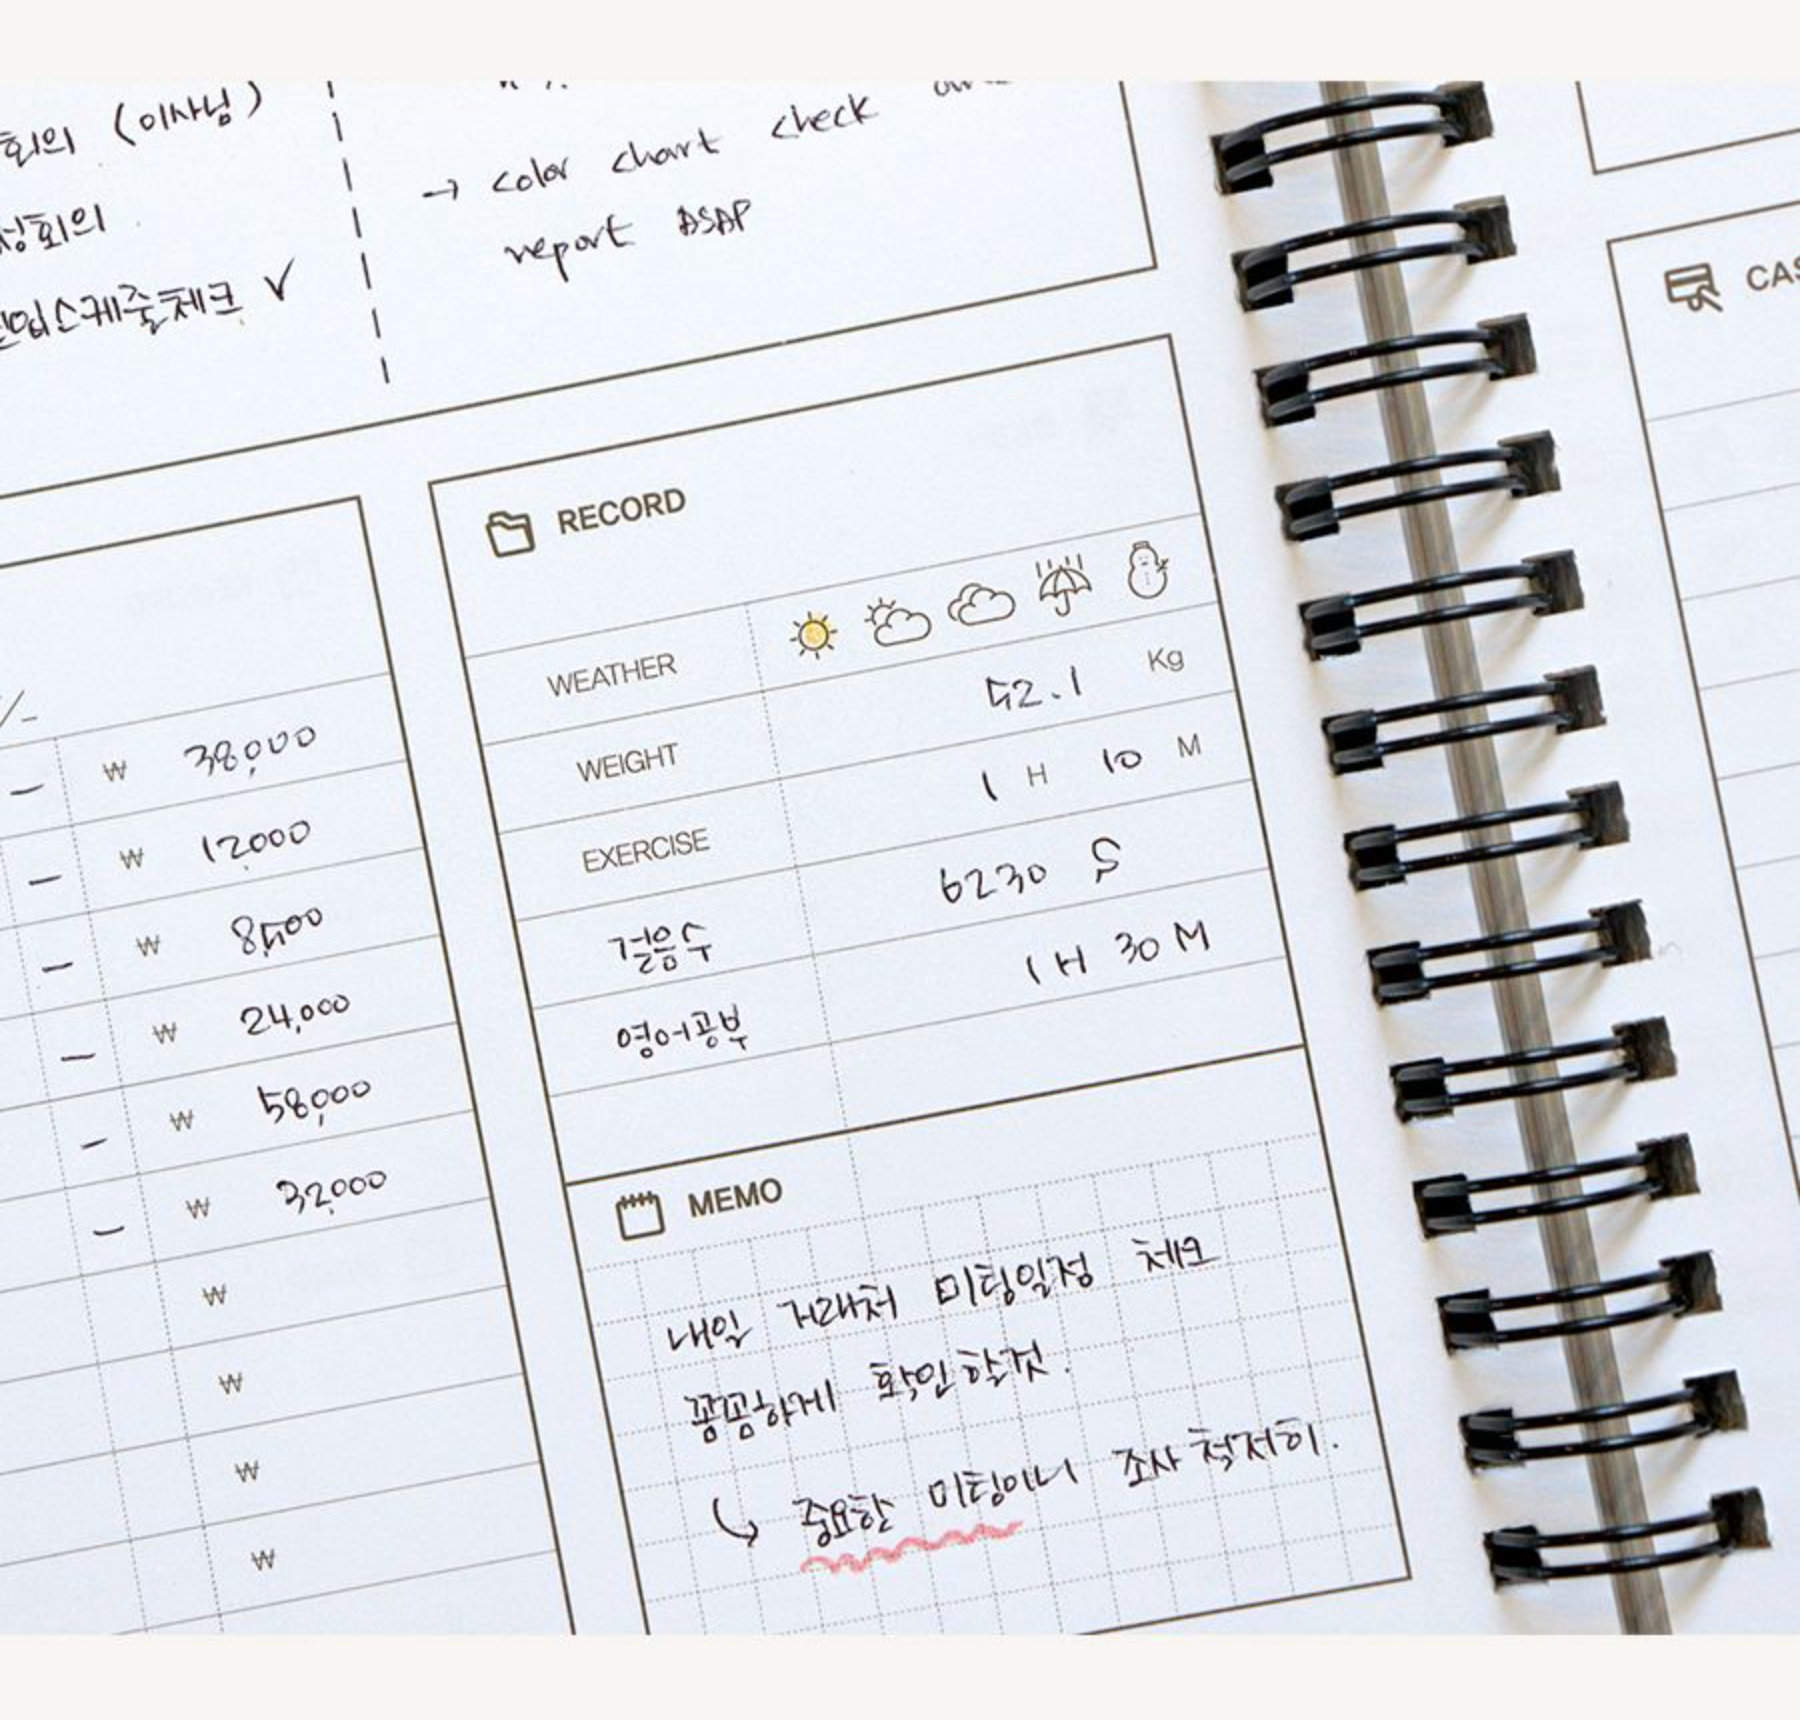 회의 (이사님)
성회의
업스케줄체크 ✓
→ color chart check
report ASAP
CAS
RECORD
WEATHER
WEIGHT 52.1 Kg
EXERCISE 1 H 10 M
걸음수 6230 S
영어공부 1 H 30 M
— ₩ 38,000
— ₩ 12,000
— ₩ 8,500
— ₩ 24,000
— ₩ 58,000
— ₩ 32,000
₩
₩
₩
₩
MEMO
내일 거래처 미팅일정 체크
꼼꼼하게 확인할것.
↳ 중요한 미팅이니 조사 척저히.